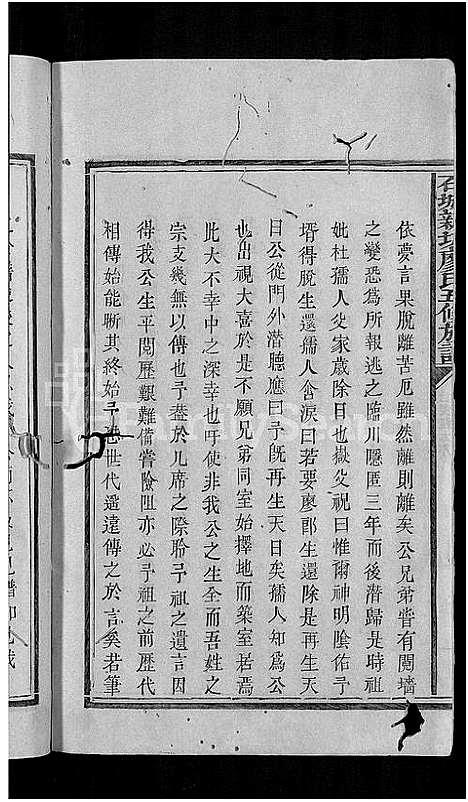 石城新坊廖氏五修族譜
依夢言果脫離苦厄雖然離則離矣公兄弟嘗有鬩墻
之變悉為所報逃之臨川隱匿三年而後潛歸是時祖
妣杜孺人父家歲除日也嶽父祝曰惟爾神明陰佑予
壻得脫生還孺人含淚曰若要廖郎生還除是再生天
日公從門外潛聽應曰予既再生天日矣孺人知為公
也出視大喜於是不願兄弟同室始擇地而築室居焉
此大不幸中之深幸也吁使非我公之生全而吾姓之
宗支幾無以傳也予葢於几席之際聆予祖之遺言因
得我公生平閱歷艱難備嘗險阻亦必予祖之前歷代
相傳始能晰其終始予恐世代遙遠傳之於言奚若筆
FamilySearch